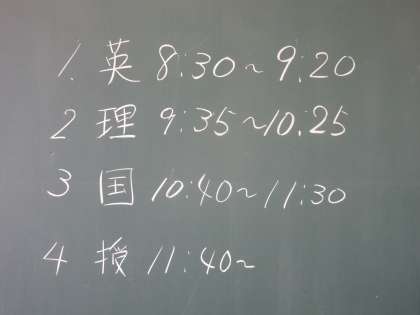 1. 英 8:30~9:20
2 理 9:35~10:25
3 国 10:40~11:30
4 授 11:40~